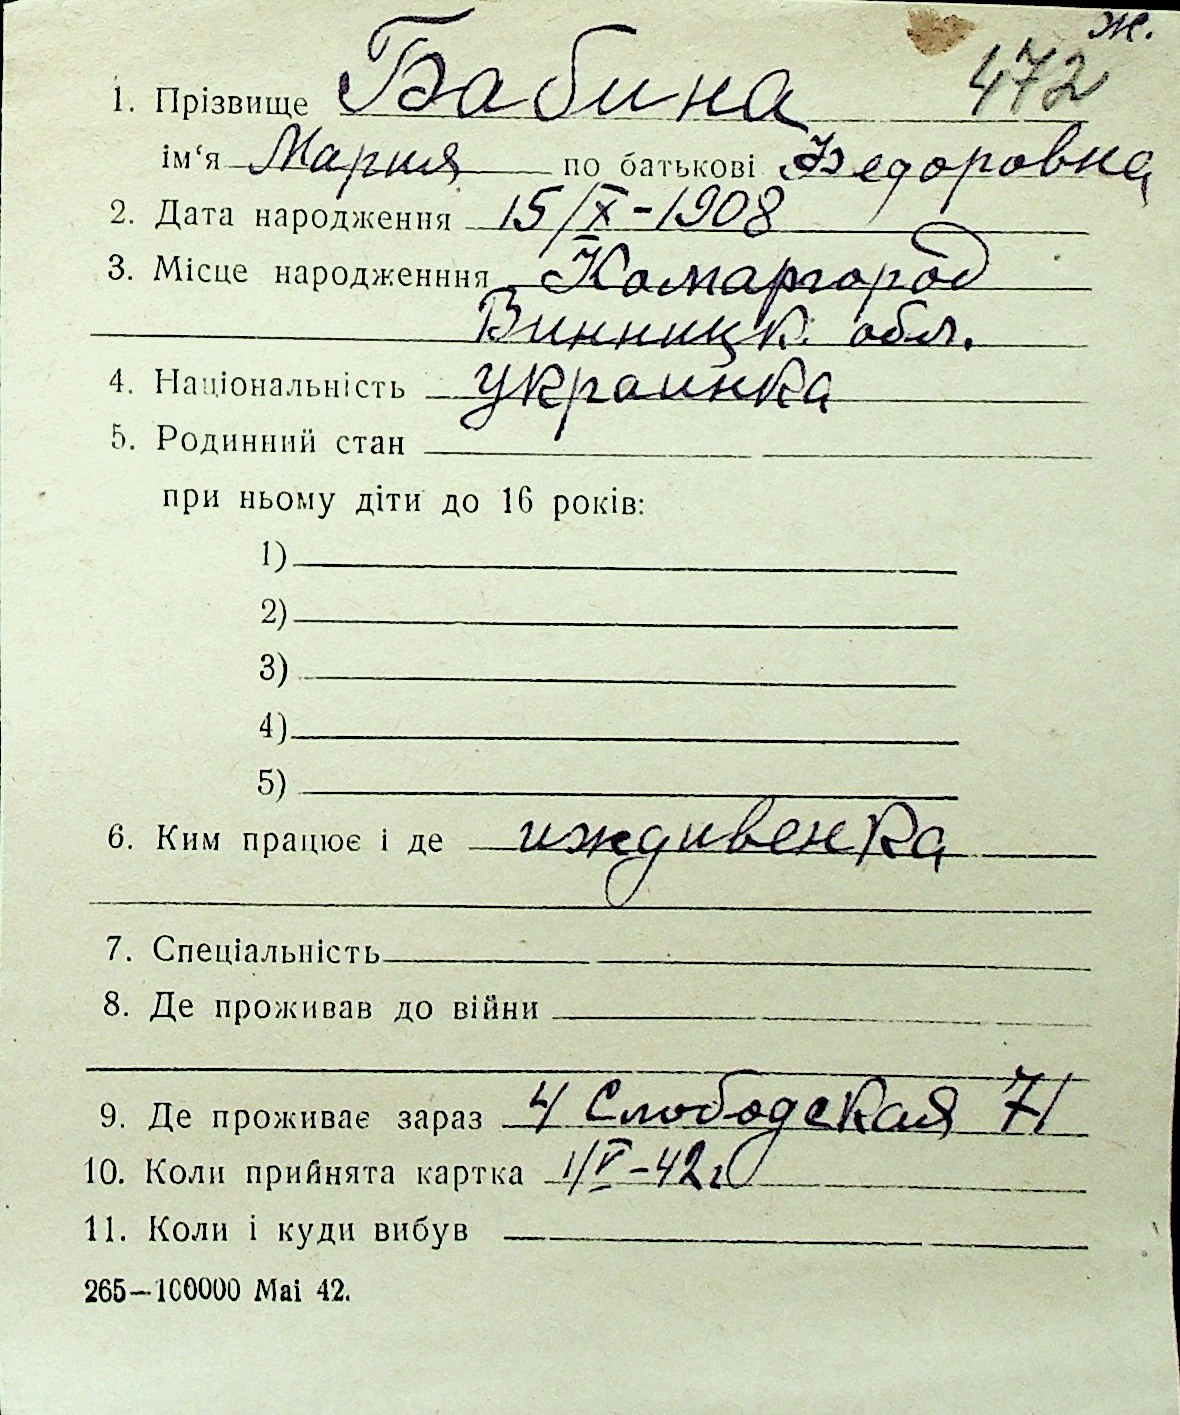 ж.
472
1. Прізвище Бабина
ім‘я Мария по батькові Федоровна
2. Дата народження 15/X-1908
3. Місце народженння Комаргород
Винницк. обл.
4. Національність украинка
5. Родинний стан
при ньому діти до 16 років:
1)
2)
3)
4)
5)
6. Ким працює і де иждивенка
7. Спеціальність
8. Де проживав до війни
9. Де проживає зараз 4 Слободская 71
10. Коли прийнята картка 1/V-42г
11. Коли і куди вибув
265—100000 Mai 42.